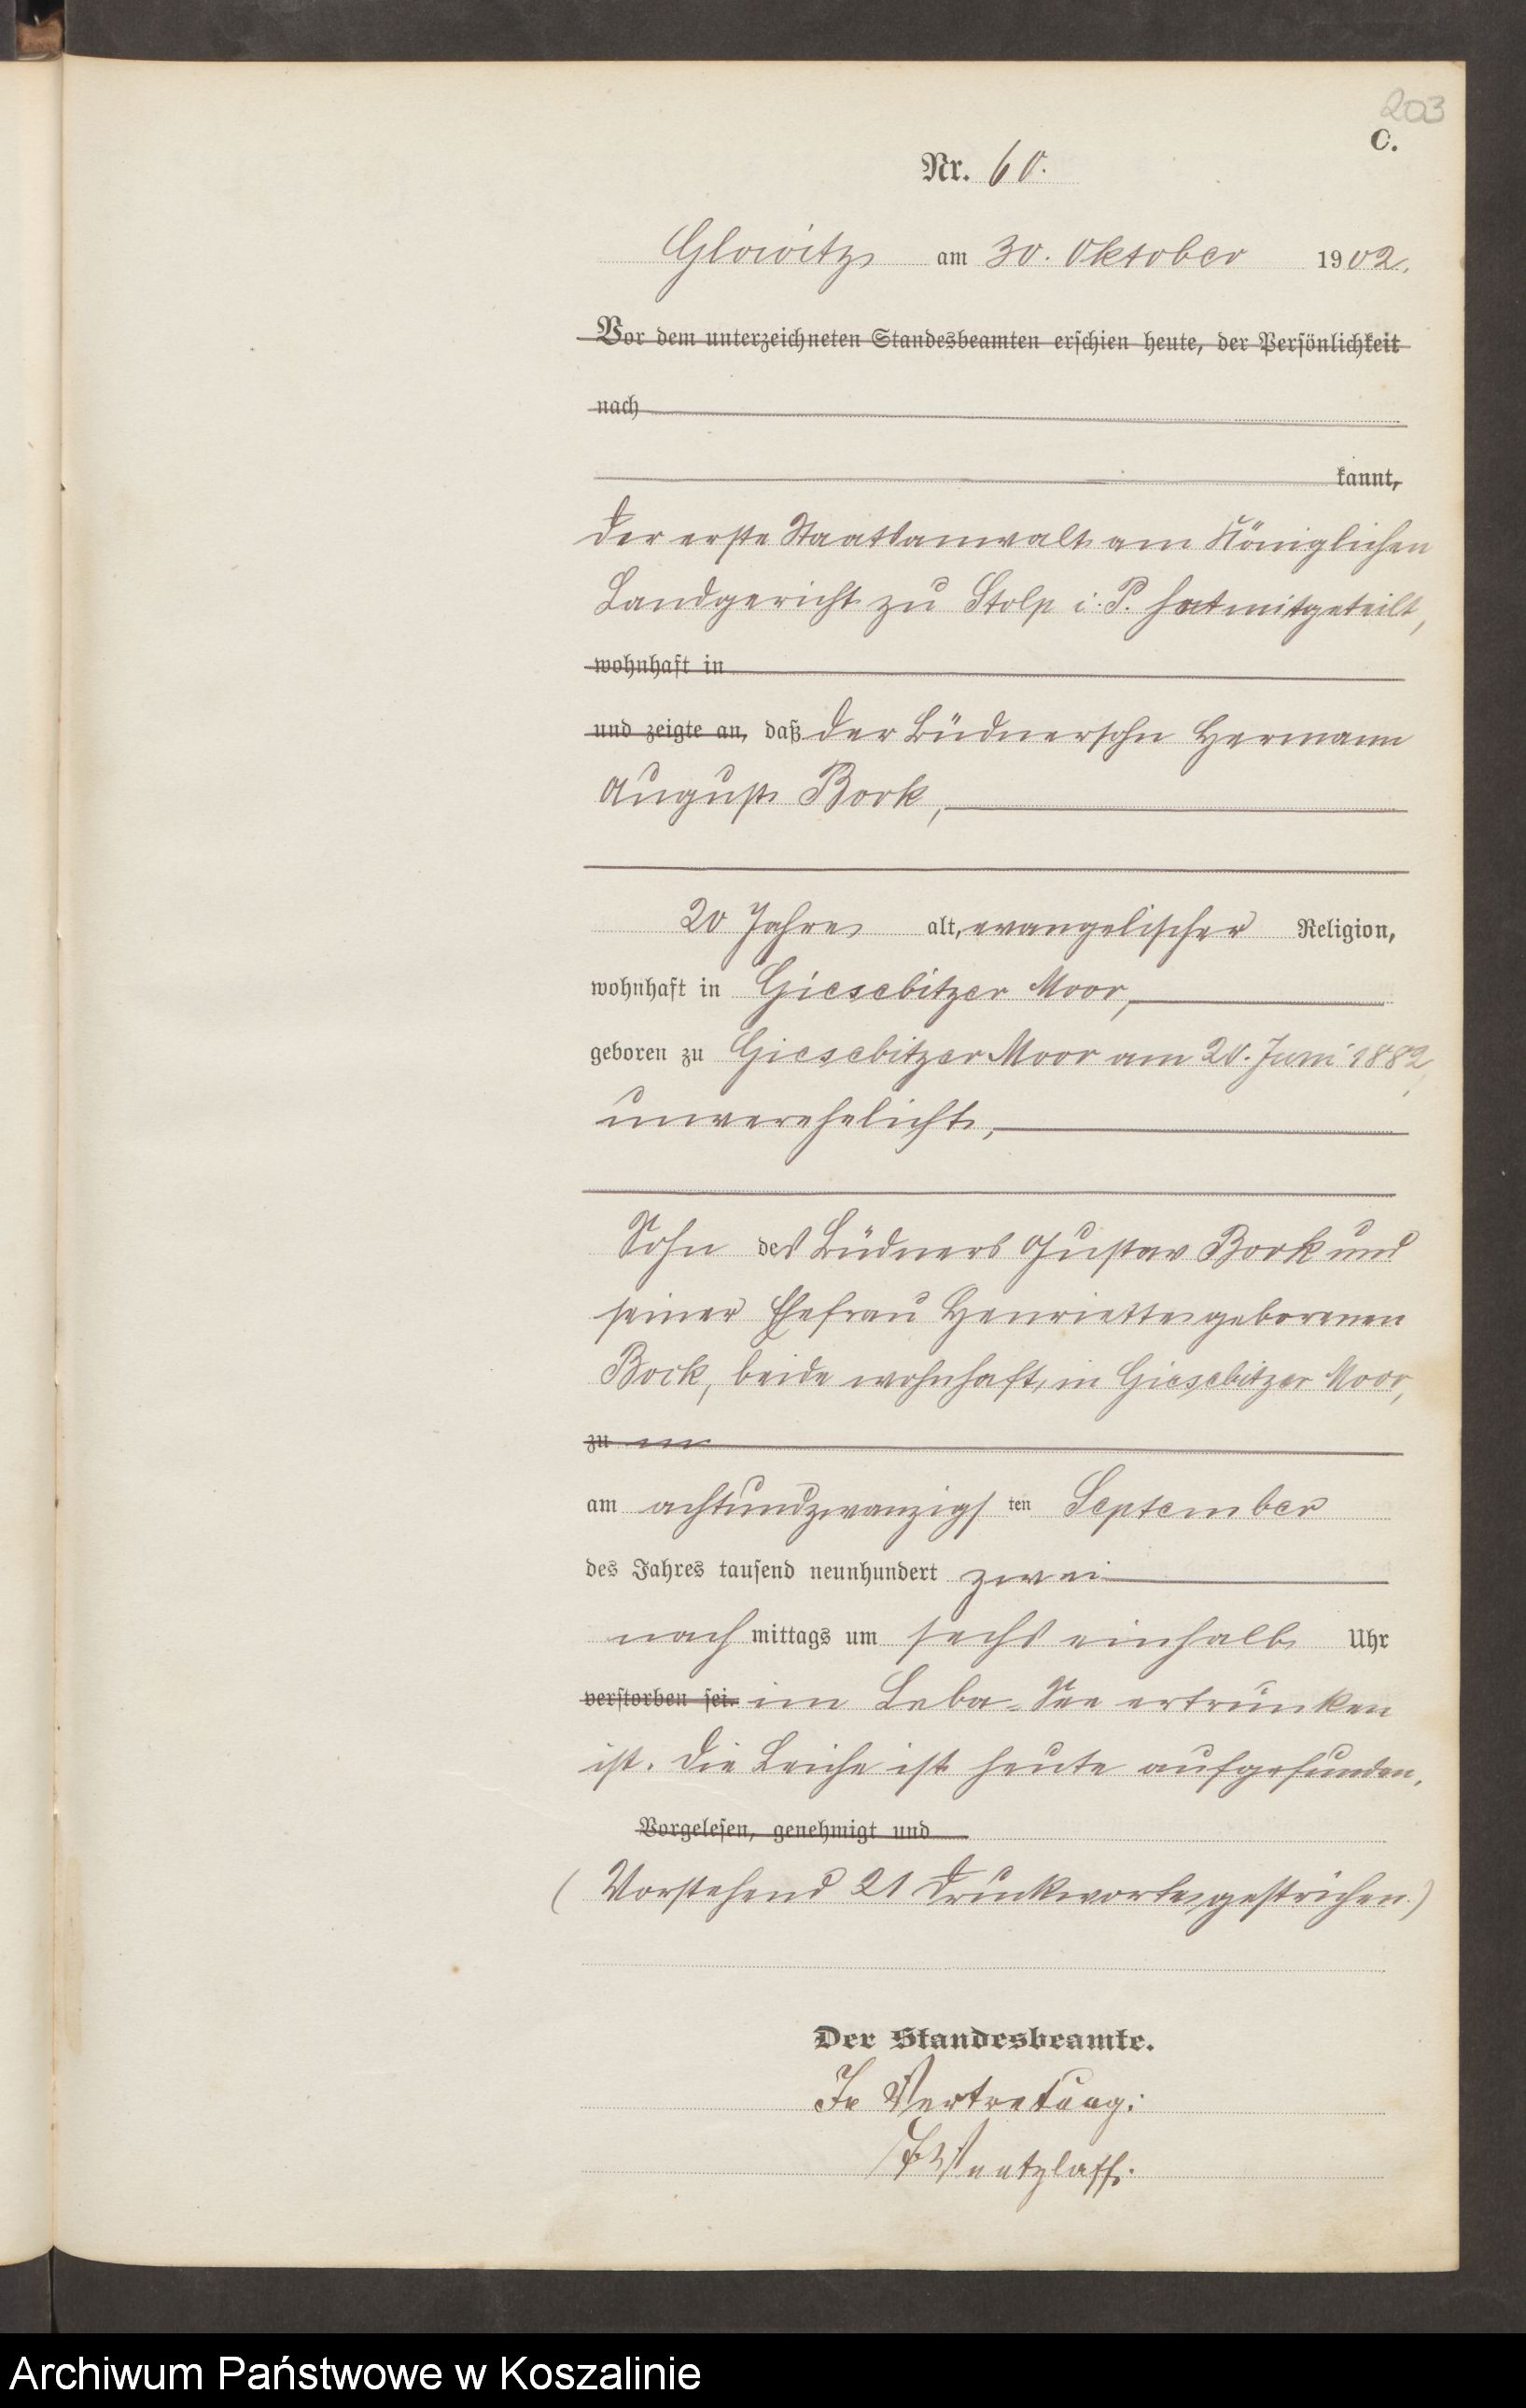 203
C.
Nr. 60.
Glowitz am 30. Oktober 1902.
Vor dem unterzeichneten Standesbeamten erschien heute, der Persönlichkeit
nach
kannt,
der erste Staatsanwalt am Königlichen
Landgericht zu Stolp i. P. hat mitgeteilt,
wohnhaft in
und zeigte an, daß der Büdnersohn Hermann
August Bork,
20 Jahre alt, evangelischer Religion,
wohnhaft in Giesebitzer Moor,
geboren zu Giesebitzer Moor am 20. Juni 1882,
unverehelicht,
Sohn des Büdners Gustav Bork und
seiner Ehefrau Henriette geborenen
Bock, beide wohnhaft in Giesebitzer Moor,
zu
am achtundzwanzigsten September
des Jahres tausend neunhundert zwei
nachmittags um sechs einhalb Uhr
verstorben sei. im Leba-See ertrunken
ist. Die Leiche ist heute aufgefunden.
Vorgelesen, genehmigt und
(Vorstehend 21 Druckworte gestrichen.)
Der Standesbeamte.
In Vertretung:
Wentzlaff.
Archiwum Państwowe w Koszalinie